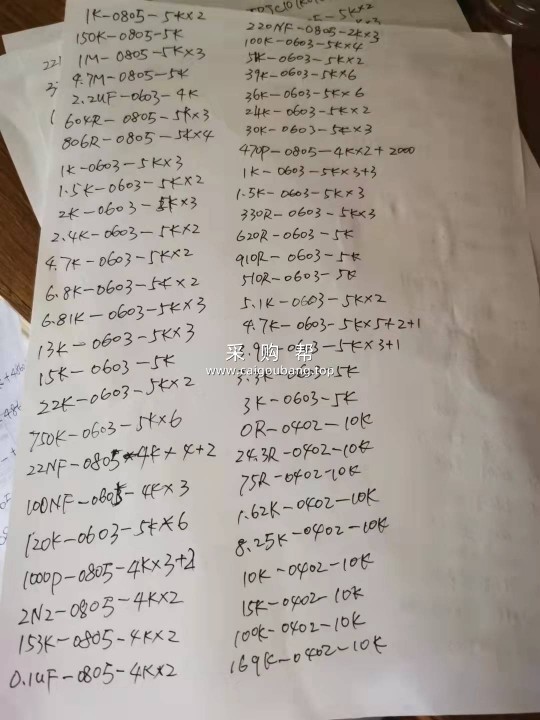 1K-0805-5K×2
150K-0805-5K
1M-0805-5K×3
4.7M-0805-5K
2.2UF-0603-4K
604R-0805-5K×3
806R-0805-5K×4
1K-0603-5K×3
1.5K-0603-5K×2
2K-0603-5K×3
2.4K-0603-5K×2
4.7K-0603-5K×2
6.8K-0603-5K×2
6.81K-0603-5K×3
13K-0603-5K×3
15K-0603-5K
22K-0603-5K×2
750K-0603-5K×6
22NF-0805-4K×4+2
100NF-0805-4K×3
120K-0603-5K×6
1000P-0805-4K×3+2
2N2-0805-4K×2
153K-0805-4K×2
0.1UF-0805-4K×2
220NF-0805-2K×3
100K-0603-5K×4
51K-0603-5K×2
39K-0603-5K×6
36K-0603-5K×6
24K-0603-5K×2
30K-0603-5K×3
470P-0805-4K×2+2000
1K-0603-5K×3+3
1.5K-0603-5K×3
330R-0603-5K×3
620R-0603-5K
910R-0603-5K
510R-0603-5K
5.1K-0603-5K×2
4.7K-0603-5K×5+2+1
-5K×3+1
3.3K-0603-5K
3K-0603-5K
0R-0402-10K
24.3R-0402-10K
75R-0402-10K
1.62K-0402-10K
8.25K-0402-10K
10K-0402-10K
15K-0402-10K
100K-0402-10K
169K-0402-10K
采购帮
www.caigoubang.top